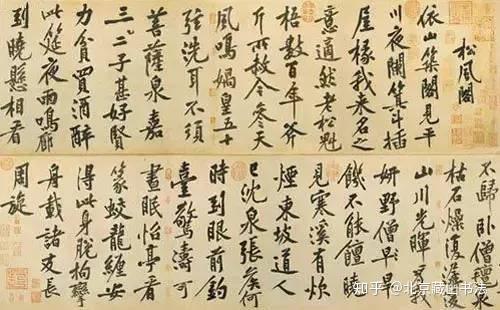 松風閣
依山築閣見平
川夜闌箕斗插
屋椽我來名之
意適然老松魁
梧數百年斧
斤所赦今參天
風鳴媧皇五十
弦洗耳不須
菩薩泉嘉
三二子甚好賢
力貧買酒醉
此筵夜雨鳴廊
到曉懸相看
不歸臥僧氈泉
枯石燥復潺湲
山川光暉為我
妍野僧早旱
饑不能饘曉
見寒溪有炊
煙東坡道人
已沈泉張侯何
時到眼前釣
臺驚濤可
晝眠怡亭看
篆蛟龍纏安
得此身脫拘攣
舟載諸友長
周旋
知乎 @北京藏幽书法